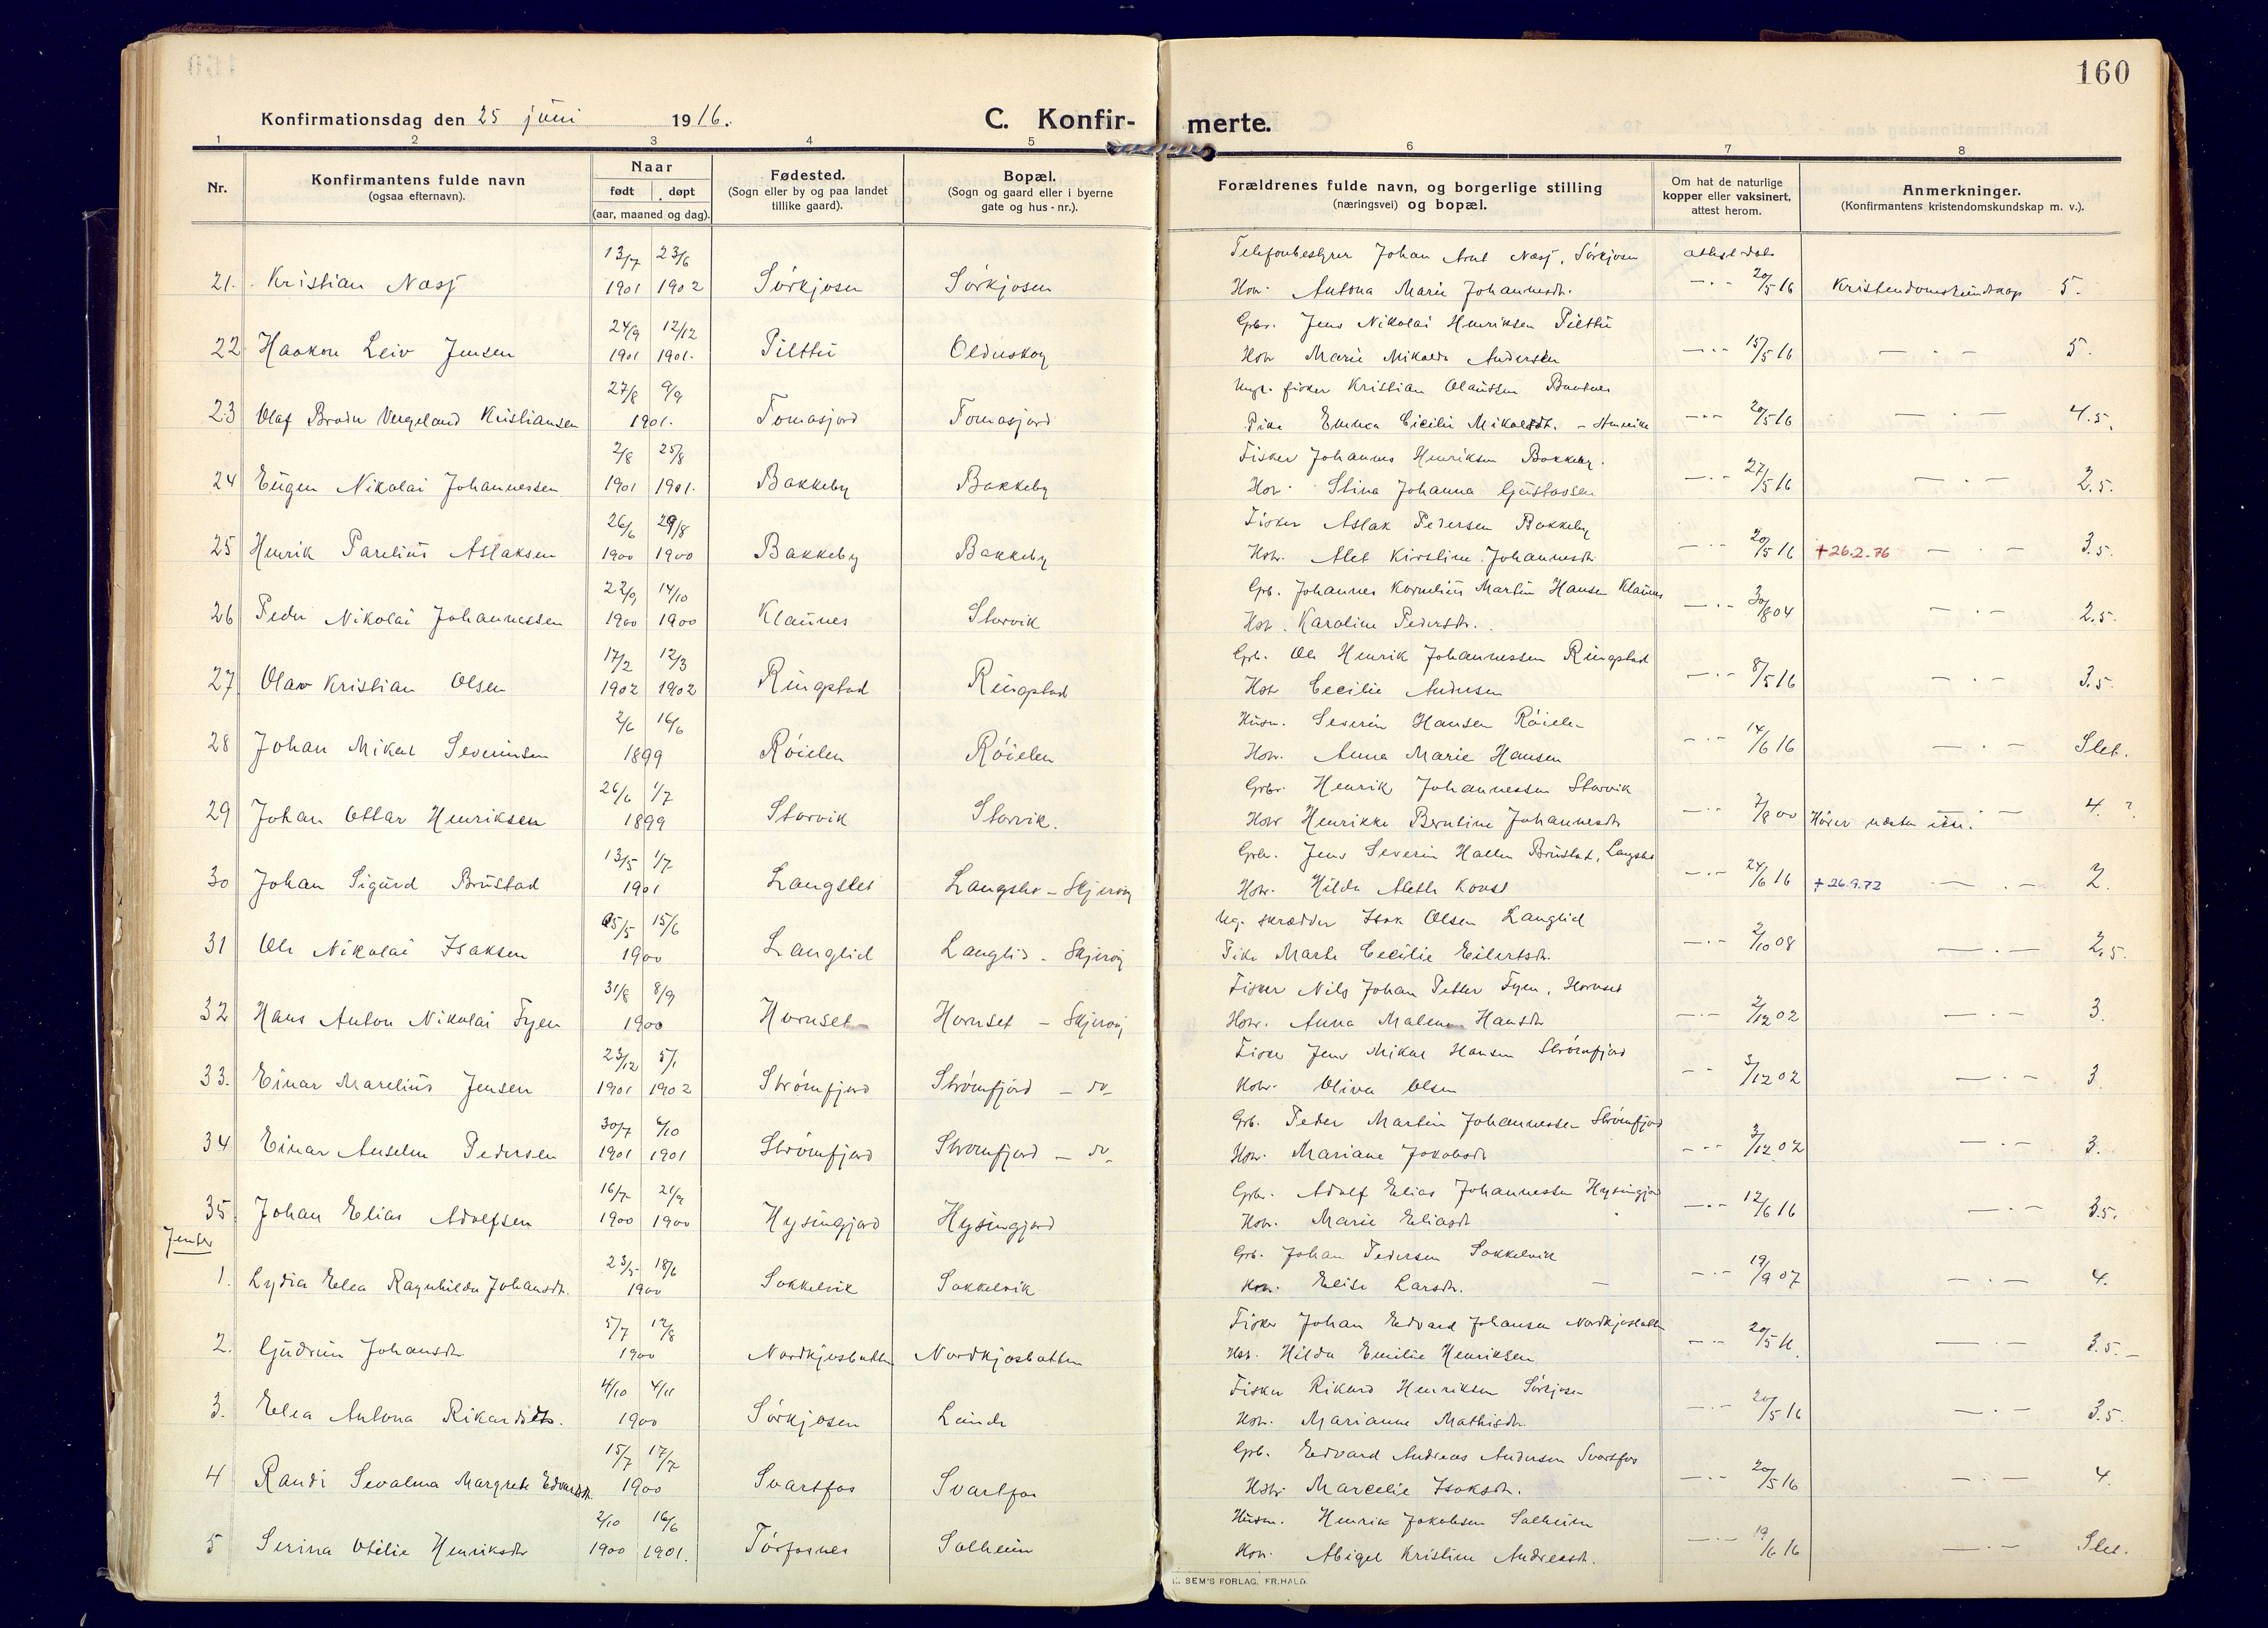 160
Konfirmationsdag den 25 juni 1916.
C. Konfir-
merte.
1 2 3 4 5 6 7 8
Nr.
Konfirmantens fulde navn
(ogsaa efternavn).
Naar
født døpt
(aar, maaned og dag).
Fødested.
(Sogn eller by og paa landet
tillike gaard).
Bopæl.
(Sogn og gaard eller i byerne
gate og hus-nr.).
Forældrenes fulde navn, og borgerlige stilling
(næringsvei) og bopæl.
Om hat de naturlige
kopper eller vaksinert,
attest herom.
Anmerkninger.
(Konfirmantens kristendomskundskap m. v.).
13/7 23/6 Telefonbestyrer Johan Arnt Næsj, Sörkjosen
21. Kristian Næsj 1901 1902 Sörkjosen Sörkjosen Hstr. Antona Marie Johannesdtr. — . - 20/5 16 Kristendomskundskap 5.
24/9 12/12 Gbr. Jens Nikolai Henriksen Pilttü
22 Haakon Leiv Jensen 1901 1901. Pilttü Oldüskog Hstr Marie Mikalda Andersen — . - 15/5 16 — . — 5.
27/8 9/9 Ungk. fisker Kristian Olaüssen
23 Olaf Brodin Vergeland Kristiansen 1901. Tomasjord Tomasjord Pike Emma Cicilie Mikalsdt. - Amerika — . - 20/5 16 — . — 4.5.
2/8 25/8 Fisker Johannes Henriksen Bakkeby.
24 Eügen Nikolai Johannessen 1901 1901. Bakkeby Bakkeby Hstr. Stina Johanna Güstavsen — . - 27/5 16 — . — 2.5.
26/6 29/8 Fisker Aslak Pedersen Bakkeby
25 Henrik Pareliüs Aslaksen 1900 1900 Bakkeby Bakkeby Hstr. Alet Kirstine Johannesdtr — . - 20/5 16 +26.2.76 — . — 3.5.
22/9 14/10 Gbr. Johannes Korneliüs Martin Hansen Klaünes
26 Peder Nikolai Johannessen 1900 1900 Klaünes Storvik Hstr. Karoline Pedersdtr. — . - 30/8 04 — . — 2.5.
17/2 12/3 Gbr. Ole Henrik Johannessen Ringstad
27 Olav Kristian Olsen 1902 1902 Ringstad Ringstad Hstr Cecilie Andersen — . - 8/5 16 — . — 3.5.
2/6 16/6 Hüsm. Severin Hansen Röielen
28 Johan Mikal Severinsen 1899 Röielen Röielen Hstr. Anna Marie Hansen — . - 14/6 16 — . — Slet.
26/6 1/7 Gbr. Henrik Johannessen Storvik
29 Johan Ottar Henriksen 1899 Storvik Storvik. Hstr Henrikke Berntine Johannesdtr — . - 7/8 00 Hörer næsten — . — 4. ?
13/5 1/7 Gbr. Jens Severin Hallen Brüstad, Langslet
30 Johan Sigürd Brüstad 1901 Langslet Langslet - Skjervöy Hstr. Hilda Aleth — . - 24/6 16 +26.9.72 — . — 2.
25/5 15/6 Ug. skrædder Isak Olsen Langlid
31 Ole Nikolai Isaksen 1900 Langlid Langlid - Skjervöy Pike Marte Cecilie Eilertsdtr. — . - 2/10 08 — . — 2,5.
31/8 8/9 Fisker Nils Johan Petter Fyen, Hornset
32 Hans Anton Nikolai Fyen 1900 Hornset Hornset - Skjervöy Hstr. Anna Malene Hansdtr — . - 2/12 02 — . — 3.
23/12 5/1 Fisker Jens Mikal Hansen Strömfjord
33. Einar Mareliüs Jensen 1901 1902 Strömfjord Strömfjord - do Hstr. Oliva Olsen — - 3/12 02 — . — 3.
30/7 6/10 Gb. Peder Martin Johannessen Strömfjord
34 Einar Anselm Pedersen 1901 1901 Strömfjord Strömfjord - do Hstr. Mariane Jakobsdtr — - - 3/12 02 — . — 3.
16/7 21/9 Gbr. Adolf Elias Johannessen Hysingjord
35. Johan Elias Adolfsen 1900 1900 Hysingjord Hysingjord Hstr. Marie Eliasdtr — . - 12/6 16 — . — 3.5.
Jenter
23/5 18/6 Gb. Johan Pedersen Sokkelvik
1. Lydia Elea Ragnhilda Johansdtr. 1900 Sokkelvik Sokkelvik Hstr. Elise Larsdtr. — — . - 19/9 07 — . — 4.
5/7 12/8 Fisker Johan Edvard Johansen Nordkjosbotten
2. Güdrün Johansdtr 1900 Nordkjosbotten Nordkjosbotten Hstr. Hilda Emilie Henriksen — . - 20/5 16. — . — 3.5.—
4/10 4/11 Fisker Rikard Henriksen Sörkjosen
3. Elea Antona Rikardsdtr. 1900 Sörkjosen Lünde Hstr. Marianne Mathisdtr. — . - 20/5 16 — . — 3.5.
15/7 17/7 Gbr. Edvard Andreas Andersen Svartfos
4 Randi Sevalma Margrete Edvardsdtr. 1900 Svartfos Svartfos Hstr Marcelie Isaksdtr. — . - 20/5 16 — . — 4.
2/10 16/6 Hüsm. Henrik Jakobsen Solheim
5 Serina Otilie Henriksdtr 1900 1901. Törfosnes Solheim Hstr. Abigel Kristine Andreasdtr. — . - 19/6 16 — . — Slet.
SEM'S FORLAG, FR.HALD.